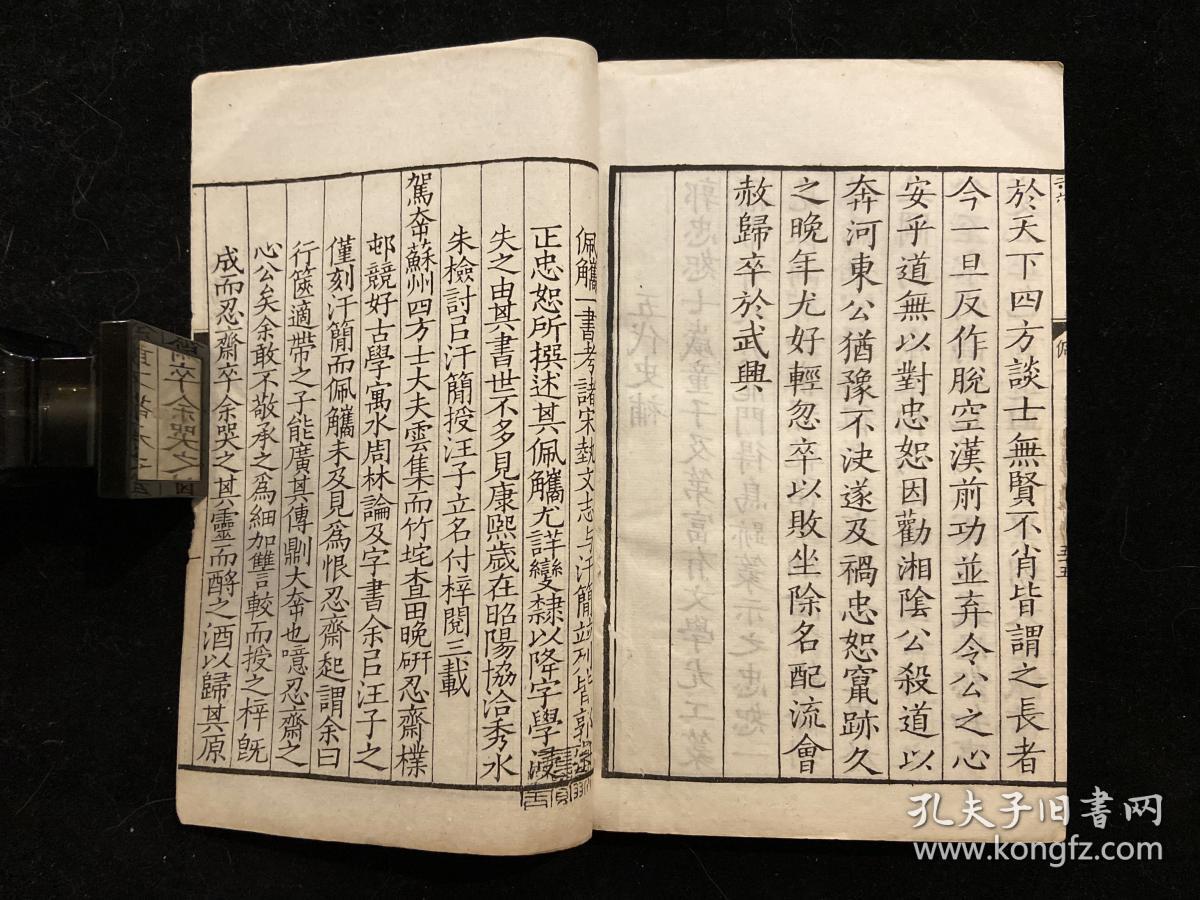 於天下四方談士無賢不肖皆謂之長者
今一旦反作脫空漢前功並弃令公之心
安乎道無以對忠恕因勸湘陰公殺道以
奔河東公猶豫不決遂及禍忠恕竄跡久
之晚年尤好輕忽卒以敗坐除名配流會
赦歸卒於武興
佩觿一書考諸宋埶文志与汗簡竝列皆郭
正忠恕所撰述其佩觿尤詳變隸以降字學漫
失之由其書世不多見康熙歲在昭陽協洽秀水
朱檢討㠯汗簡授汪子立名付梓閱三載
駕夲蘇州四方士大夫雲集而竹垞查田晚硏忍齋樸
邨競好古學寓水周林論及字書余㠯汪子之
僅刻汗簡而佩觿未及見爲恨忍齋起謂余曰
行篋適帶之子能廣其傳剻大夲也噫忍齋之
心公矣余敢不敬承之爲細加讐較而授之梓旣
成而忍齋卒余哭之其靈而酹之酒以歸其原
孔夫子旧書网
www.kongfz.com